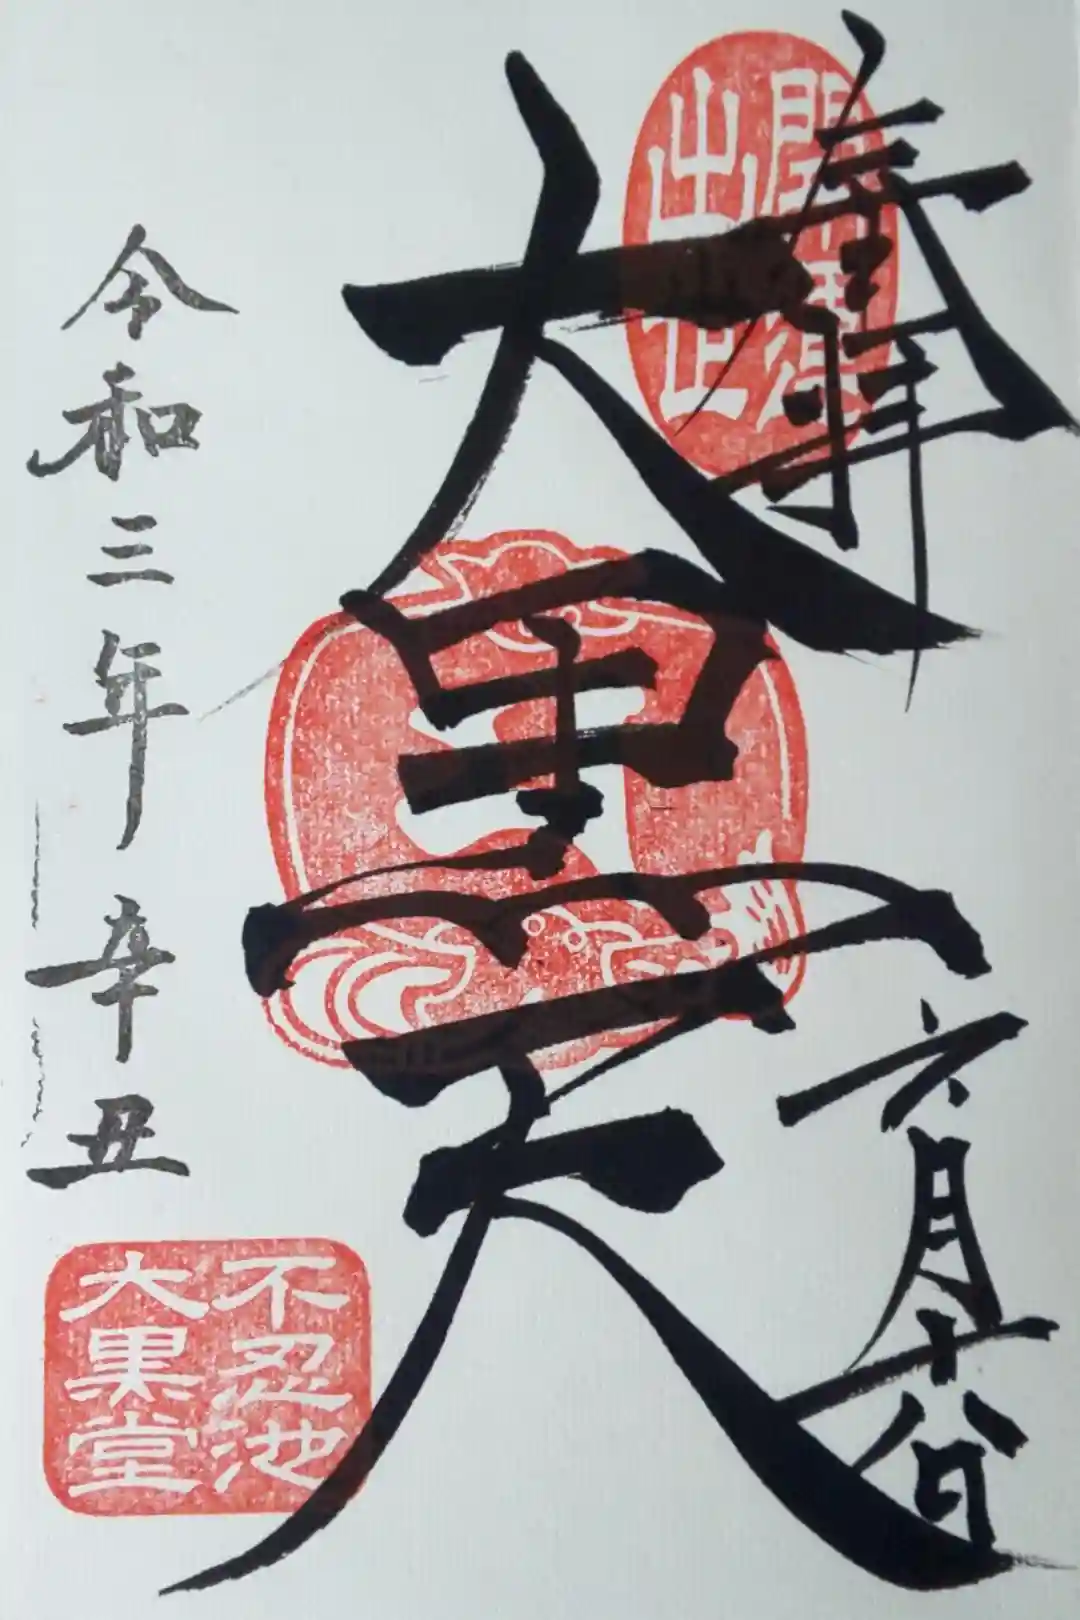 奉拝
大黒天
六月十八日
令和三年 辛丑
不忍池
大黒堂